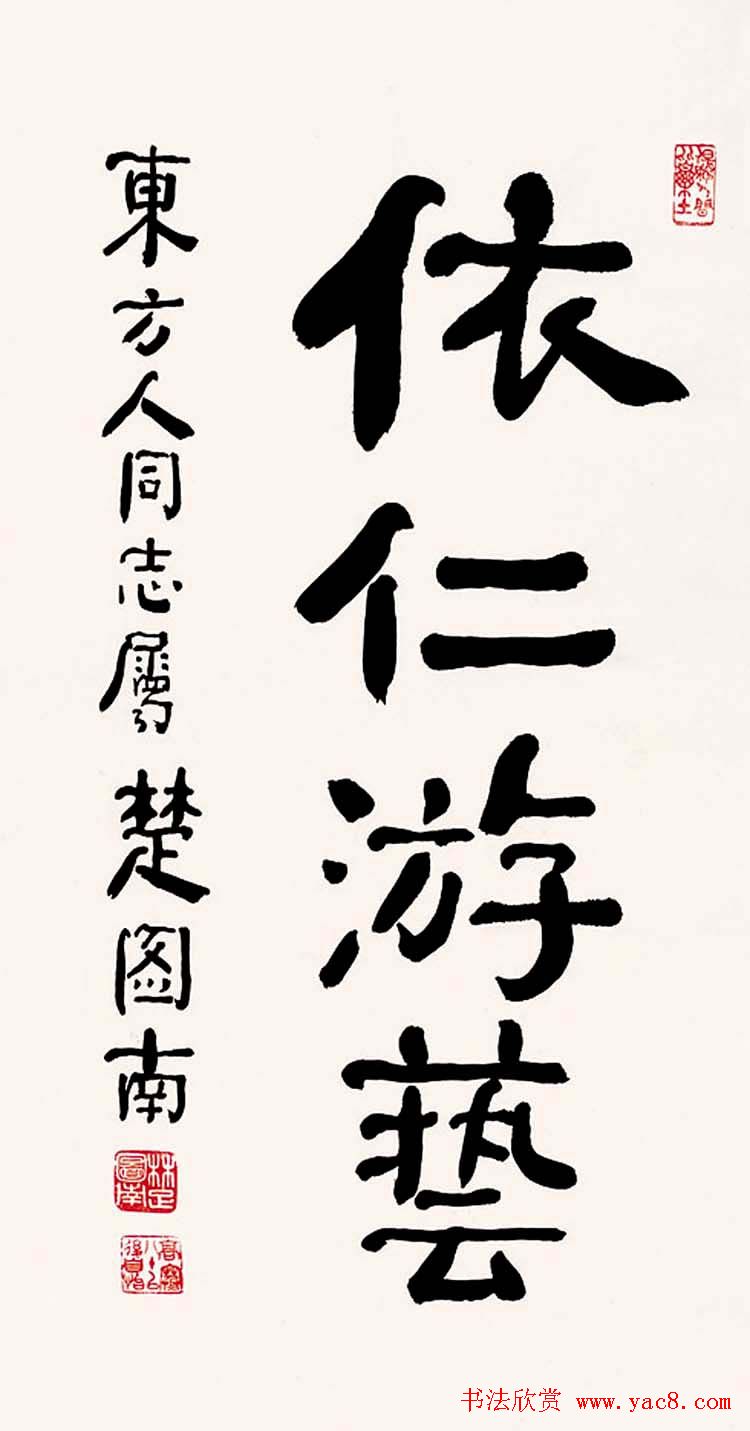 依仁游藝
東方人同志属
楚图南
书法欣赏 www.yac8.com